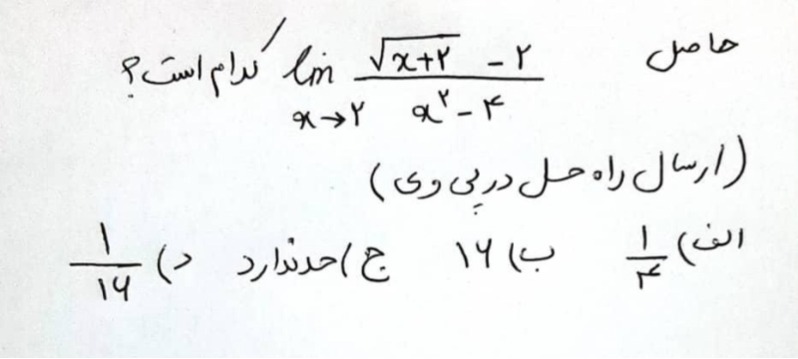 حاصل lim x→۲ (√(x+۲) - ۲)/(x^۲ - ۴) کدام است؟
(ارسال راه حل در پی وی)
الف) ۱/۴ ب) ۱۶ ج) حد ندارد د) ۱/۱۶